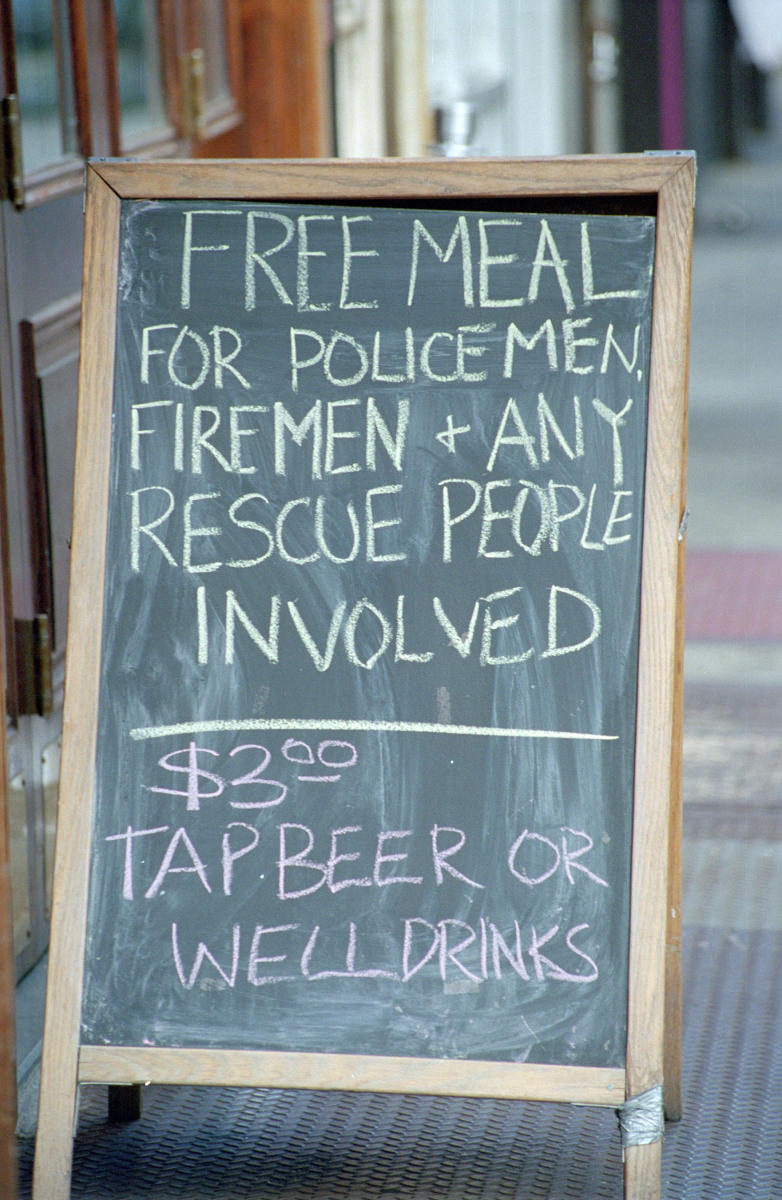 FREE MEAL
FOR POLICEMEN,
FIREMEN + ANY
RESCUE PEOPLE
INVOLVED
$3.00
TAP BEER OR
WELL DRINKS